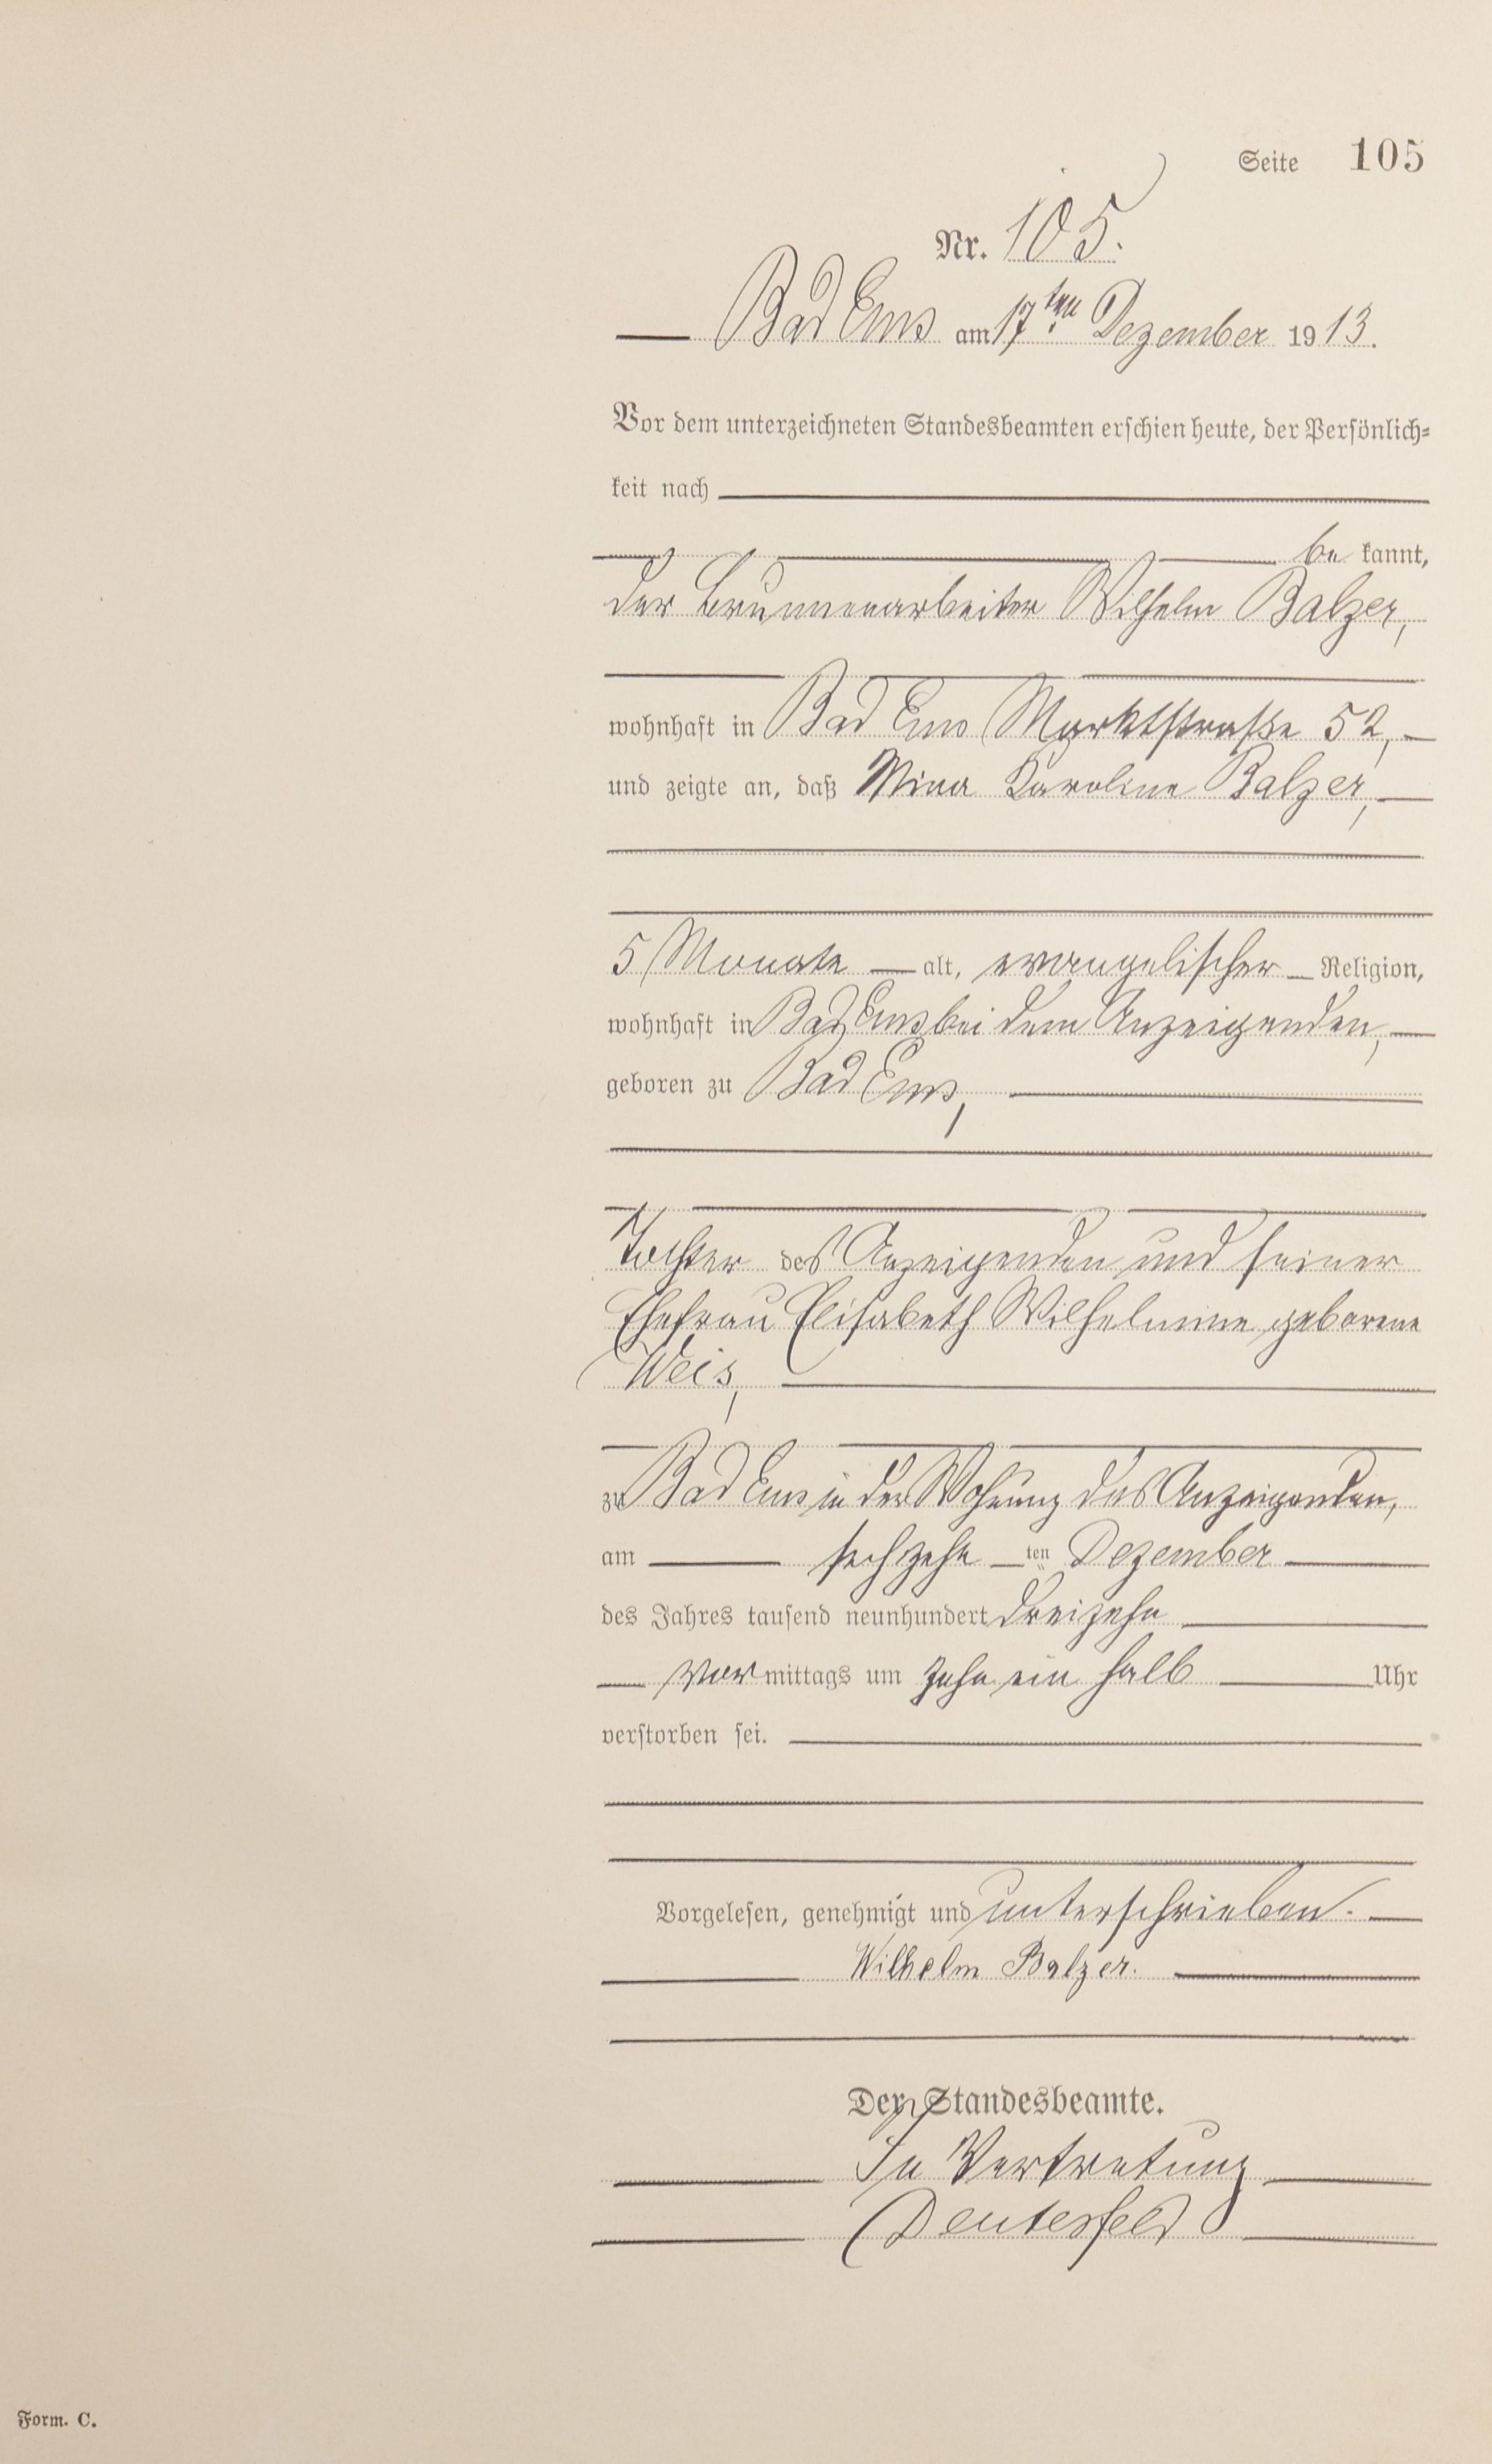 Seite 105
Nr. 105.
Bad Ems am 17ten Dezember 1913.
Vor dem unterzeichneten Standesbeamten erschien heute, der Persönlich-
keit nach
be kannt,
der Brunnenarbeiter Wilhelm Balzer,
wohnhaft in Bad Ems Marktstraße 52,
und zeigte an, daß Mina Karoline Balzer,
5 Monate alt, evangelischer Religion,
wohnhaft in Bad Ems bei dem Anzeigenden,
geboren zu Bad Ems,
Tochter des Anzeigenden und seiner
Ehefrau Elisabeth Wilhelmine geborene
Weis,
zu Bad Ems in der Wohnung des Anzeigenden,
am sechzehn ten Dezember
des Jahres tausend neunhundert dreizehn
vor mittags um zehn ein halb Uhr
verstorben sei.
Vorgelesen, genehmigt und unterschrieben.
Wilhelm Balzer.
Der Standesbeamte.
In Vertretung
Deutesfeld
Form. C.